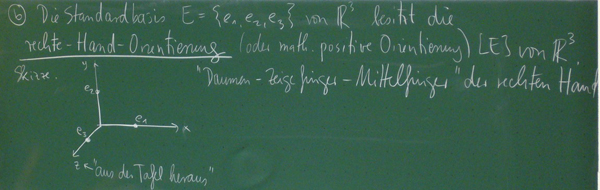 ⑥ Die Standardbasis E = {e₁, e₂, e₃} von ℝ³ besitzt die
rechte-Hand-Orientierung (oder math. positive Orientierung) [E] von ℝ³.
Skizze.
"Daumen-Zeigefinger-Mittelfinger" der rechten Hand
y
e₂
e₁
x
e₃
z
"aus der Tafel heraus"